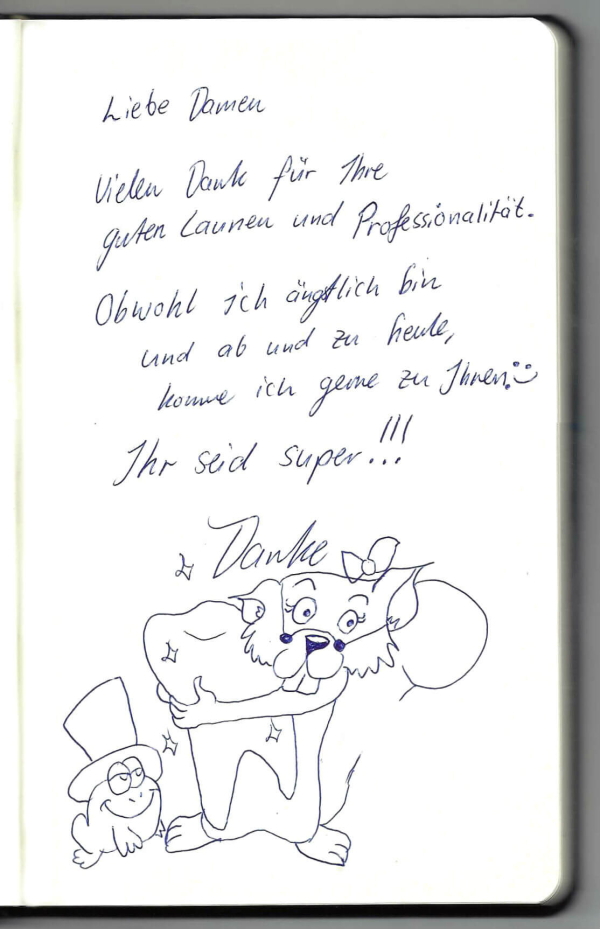 Liebe Damen
Vielen Dank für Ihre
guten Launen und Professionalität.
Obwohl ich ängstlich bin
und ab und zu heule,
komme ich gerne zu Ihnen.
Ihr seid super!!!
Danke